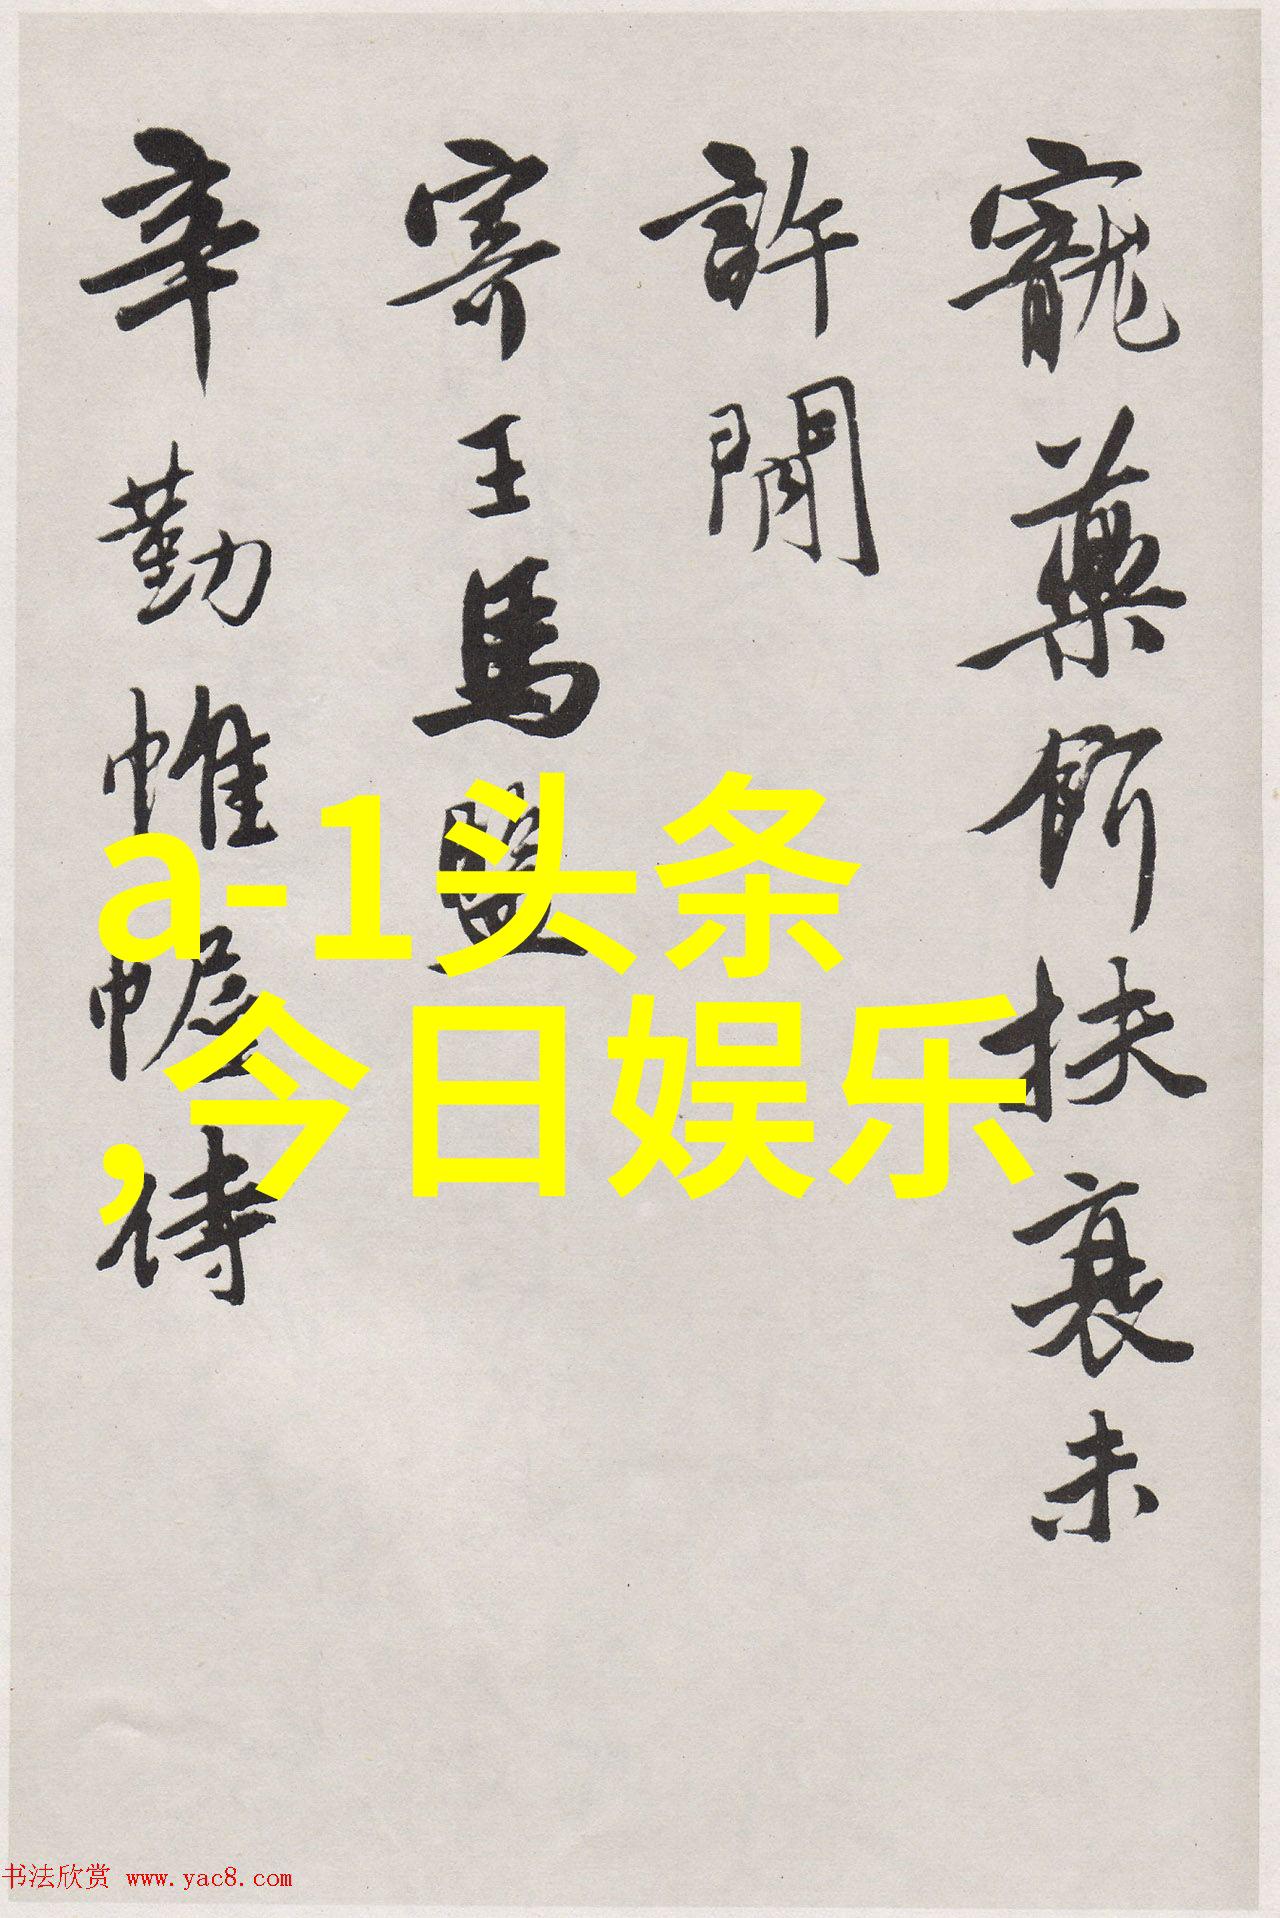 寵藥留扶衰未
許閒
寄王馬監
辛勤帷幄待
a-1头条
,今日娱乐
书法欣赏 www.yac8.com